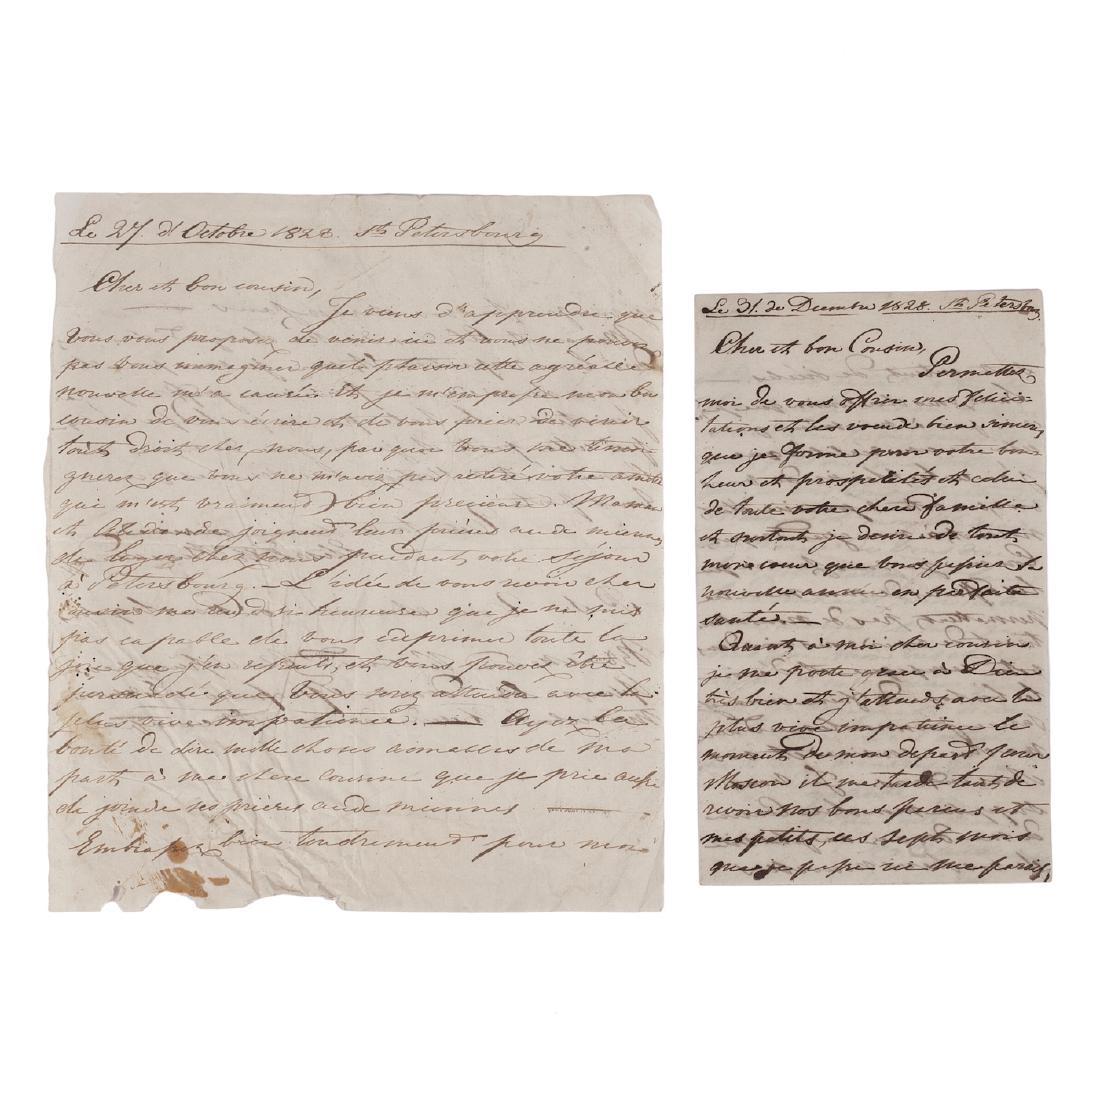 Le 27. d'Octobre 1828. St. Petersbourg
Cher et bon cousin,
Je viens d'apprendre que
vous vous proposez de venir ici et vous ne pouvez
pas vous immaginer quel plaisir cette agréable
nouvelle m'a causée et je m'empresse mon bon
cousin de vous écrire et de vous prier de venir
tout droit chez nous, par quoi vous me temoi-
gnerez que vous ne m'avez pas retiré votre amitié
qui m'est vraiment bien precieuse. Maman
et joignent leur prière au de miennes
de loger chez nous pendant votre séjour
à Petersbourg. L'idée de vous revoir cher
cousin me rend si heureuse que je ne suis
pas capable de vous exprimer toute la
joie que j'en ressents, et vous pouvez être
que vous serez attendu avec la
plus vive impatience. — Ayez la
bonté de dire mille choses aimables de ma
part à ma chere cousine que je prie aussi
de joindre ses prières au de miennes
Embrassez bien tendrement pour moi
Le 31. de Decembre 1828. St. Petersbourg
Cher et bon Cousin,
Permettez
moi de vous offrir mes felici-
tations et les voeux de bien
que je forme pour votre bon
heur et prospérité et celui
de toute votre chere famille
et surtout je desire de tout
mon coeur que vous passiez la
nouvelle année en parfaite
santé. —
Quant à moi cher cousin
je me porte grace à Dieu
très bien et j'attends avec la
plus vive impatience le
moment de mon depart pour
Moscou il me tarde tant de
revoir nos bons parens et
mes petits, ces sept mois
que je passe ne me parais,